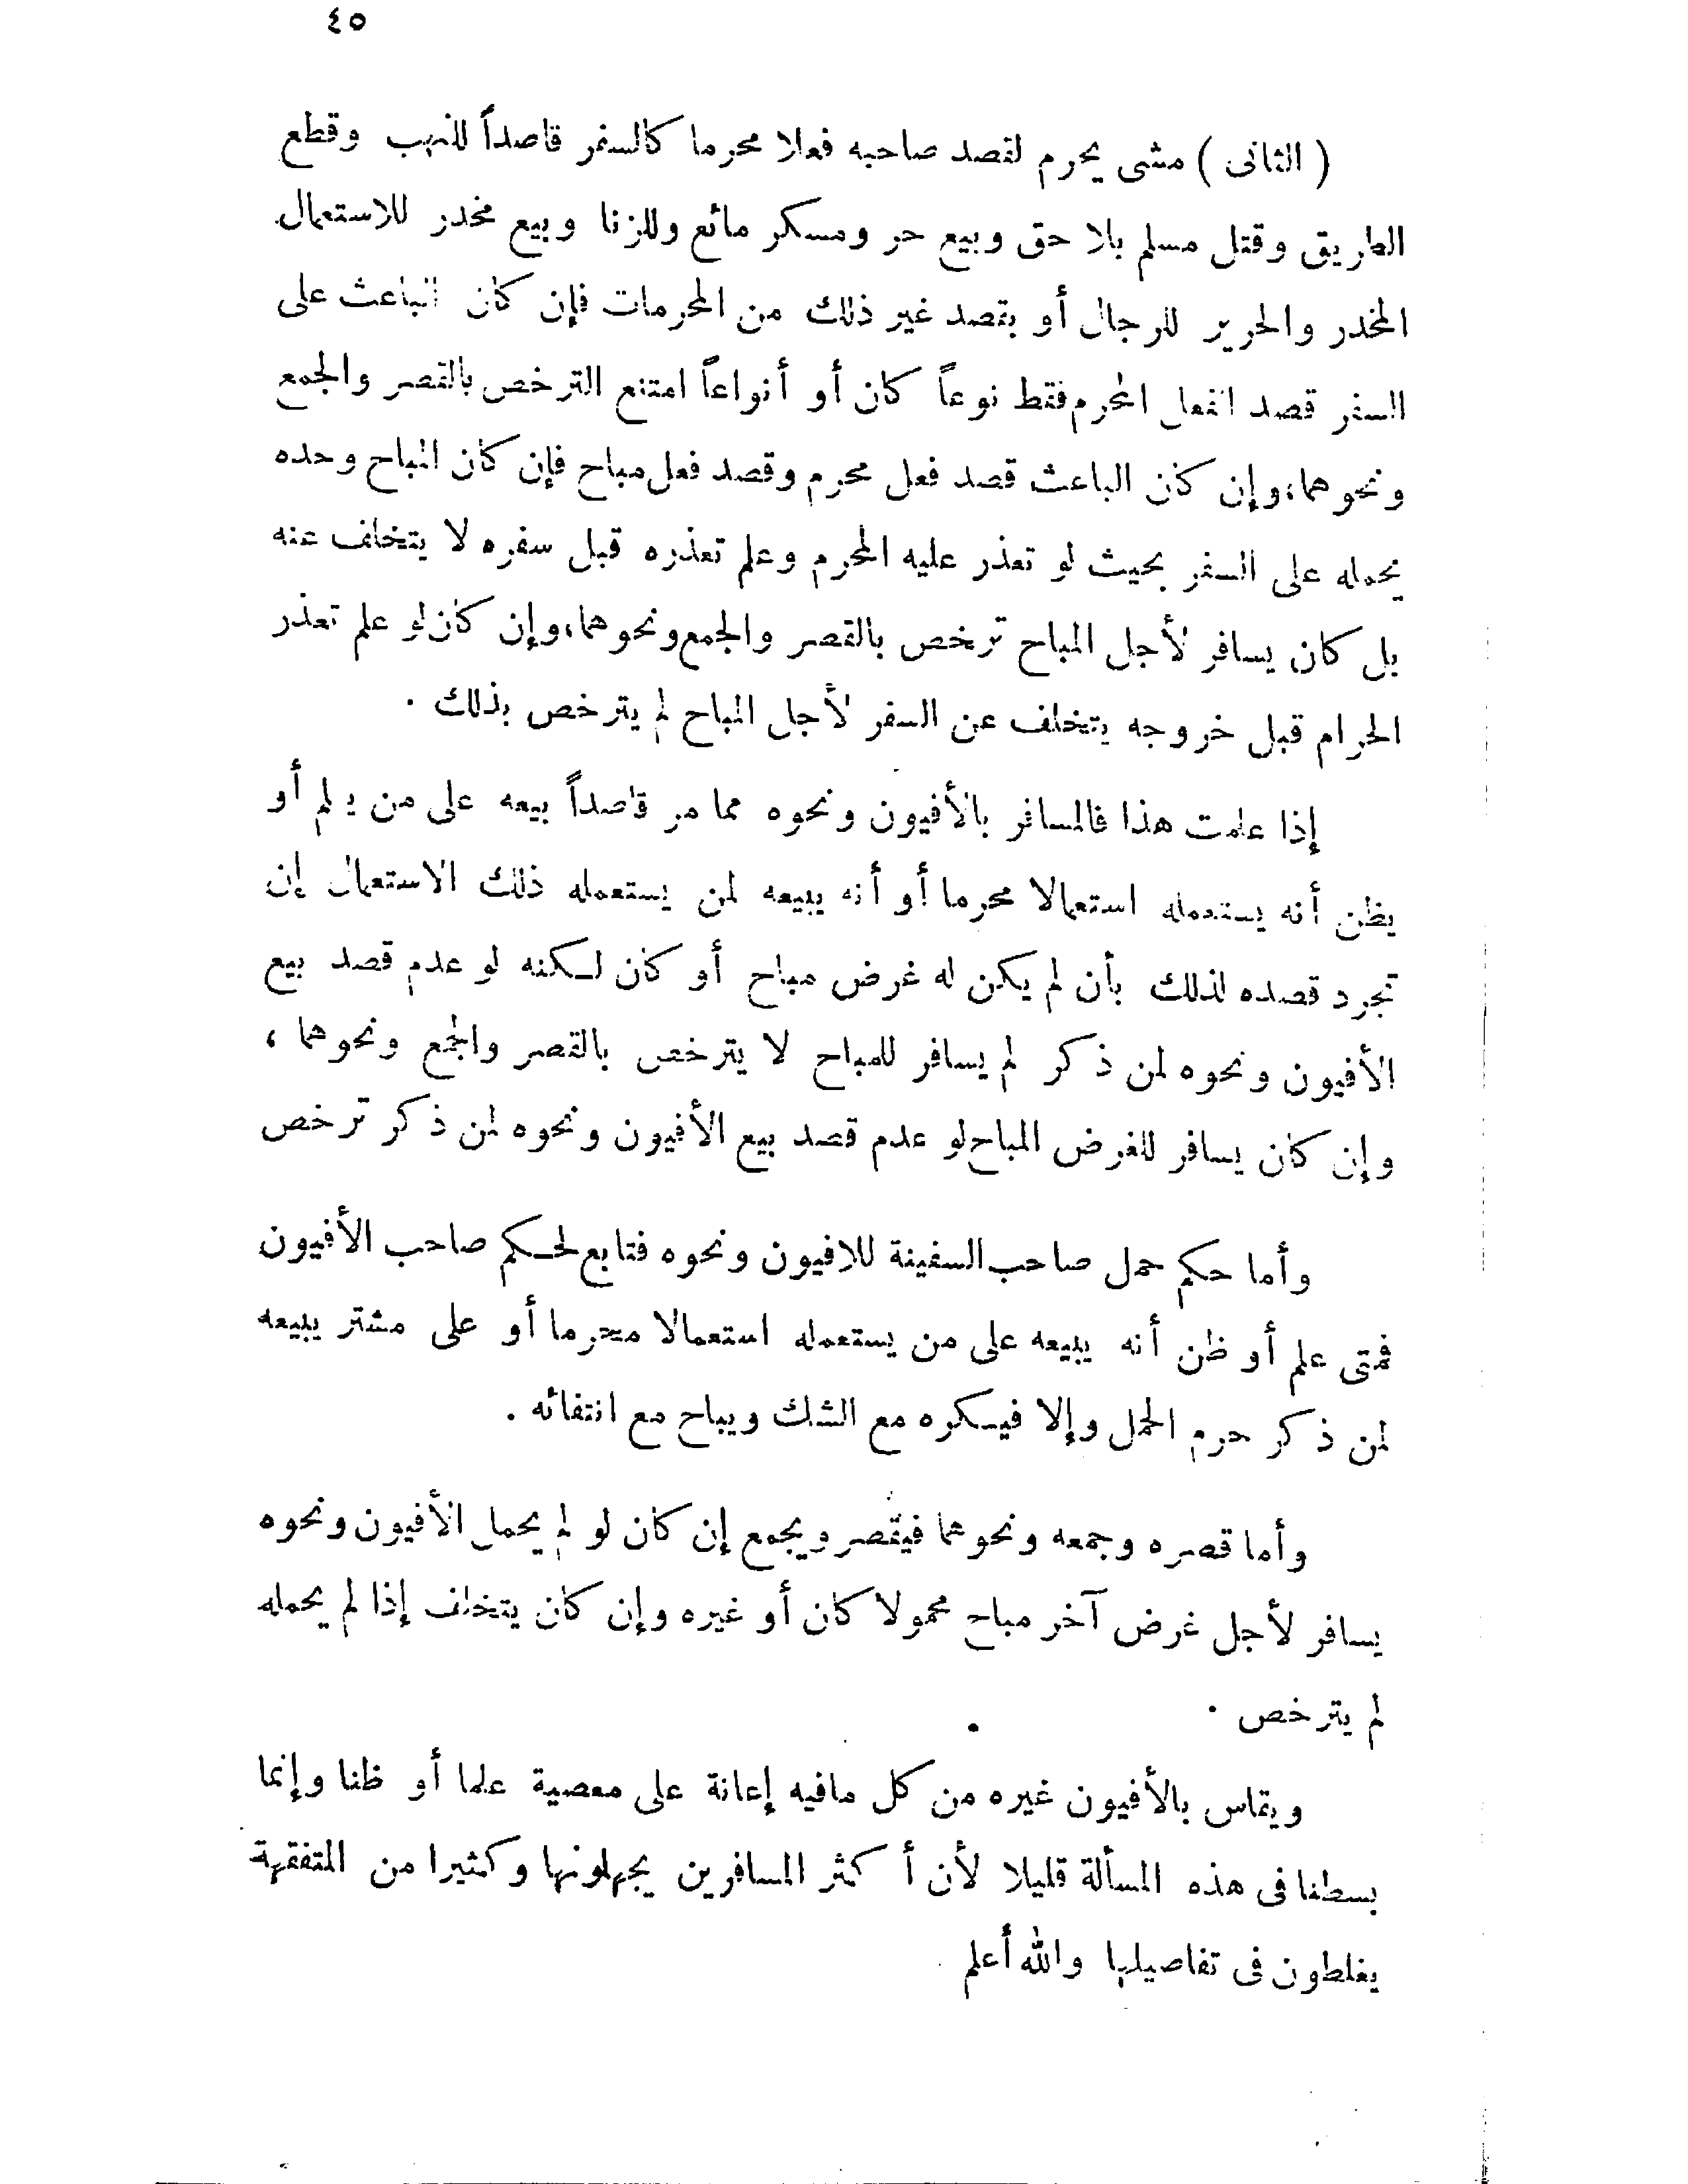 ٤٥
( الثانى ) مشى يحرم لقصد صاحبه فعلا محرما كالسفر قاصداً للنهب وقطع
الطريق وقتل مسلم بلا حق وبيع حر ومسكر مائع وللزنا وبيع مخدر للاستعمال
المخدر والحرير للرجال أو بقصد غير ذلك من المحرمات فإن كان الباعث على
السفر قصد الفعل المحرم فقط نوعاً كان أو أنواعاً امتنع الترخص بالقصر والجمع
ونحوهما، وإن كان الباعث قصد فعل محرم وقصد فعل مباح فإن كان المباح وحده
يحمله على السفر بحيث لو تعذر عليه المحرم وعلم تعذره قبل سفره لا يتخلف عنه
بل كان يسافر لأجل المباح ترخص بالقصر والجمع ونحوهما، وإن كان لو علم تعذر
الحرام قبل خروجه يتخلف عن السفر لأجل المباح لم يترخص بذلك .
إذا علمت هذا فالمسافر بالأفيون ونحوه مما مر قاصداً بيعه على من يعلم أو
يظن أنه يستعمله استعمالا محرما أو أنه يبيعه لمن يستعمله ذلك الاستعمال إن
تجرد قصده لذلك بأن لم يكن له غرض مباح أو كان لكنه لو عدم قصد بيع
الأفيون ونحوه لمن ذكر لم يسافر للمباح لا يترخص بالقصر والجمع ونحوهما ،
وإن كان يسافر للغرض المباح لو عدم قصد بيع الأفيون ونحوه لمن ذكر ترخص
وأما حكم حمل صاحب السفينة للافيون ونحوه فتابع لحكم صاحب الأفيون
فمتى علم أو ظن أنه يبيعه على من يستعمله استعمالا محرما أو على مشتر يبيعه
لمن ذكر حرم الحمل وإلا فيكره مع الشك ويباح مع انتفائه .
وأما قصره وجمعه ونحوهما فيقصر ويجمع إن كان لو لم يحمل الأفيون ونحوه
يسافر لأجل غرض آخر مباح محمولا كان أو غيره وإن كان يتخلف إذا لم يحمله
لم يترخص .
ويقاس بالأفيون غيره من كل مافيه إعانة على معصية علما أو ظنا وإنما
بسطنا فى هذه المسألة قليلا لأن أكثر المسافرين يجهلونها وكثيرا من المتفقهة
يغلطون فى تفاصيلها والله أعلم